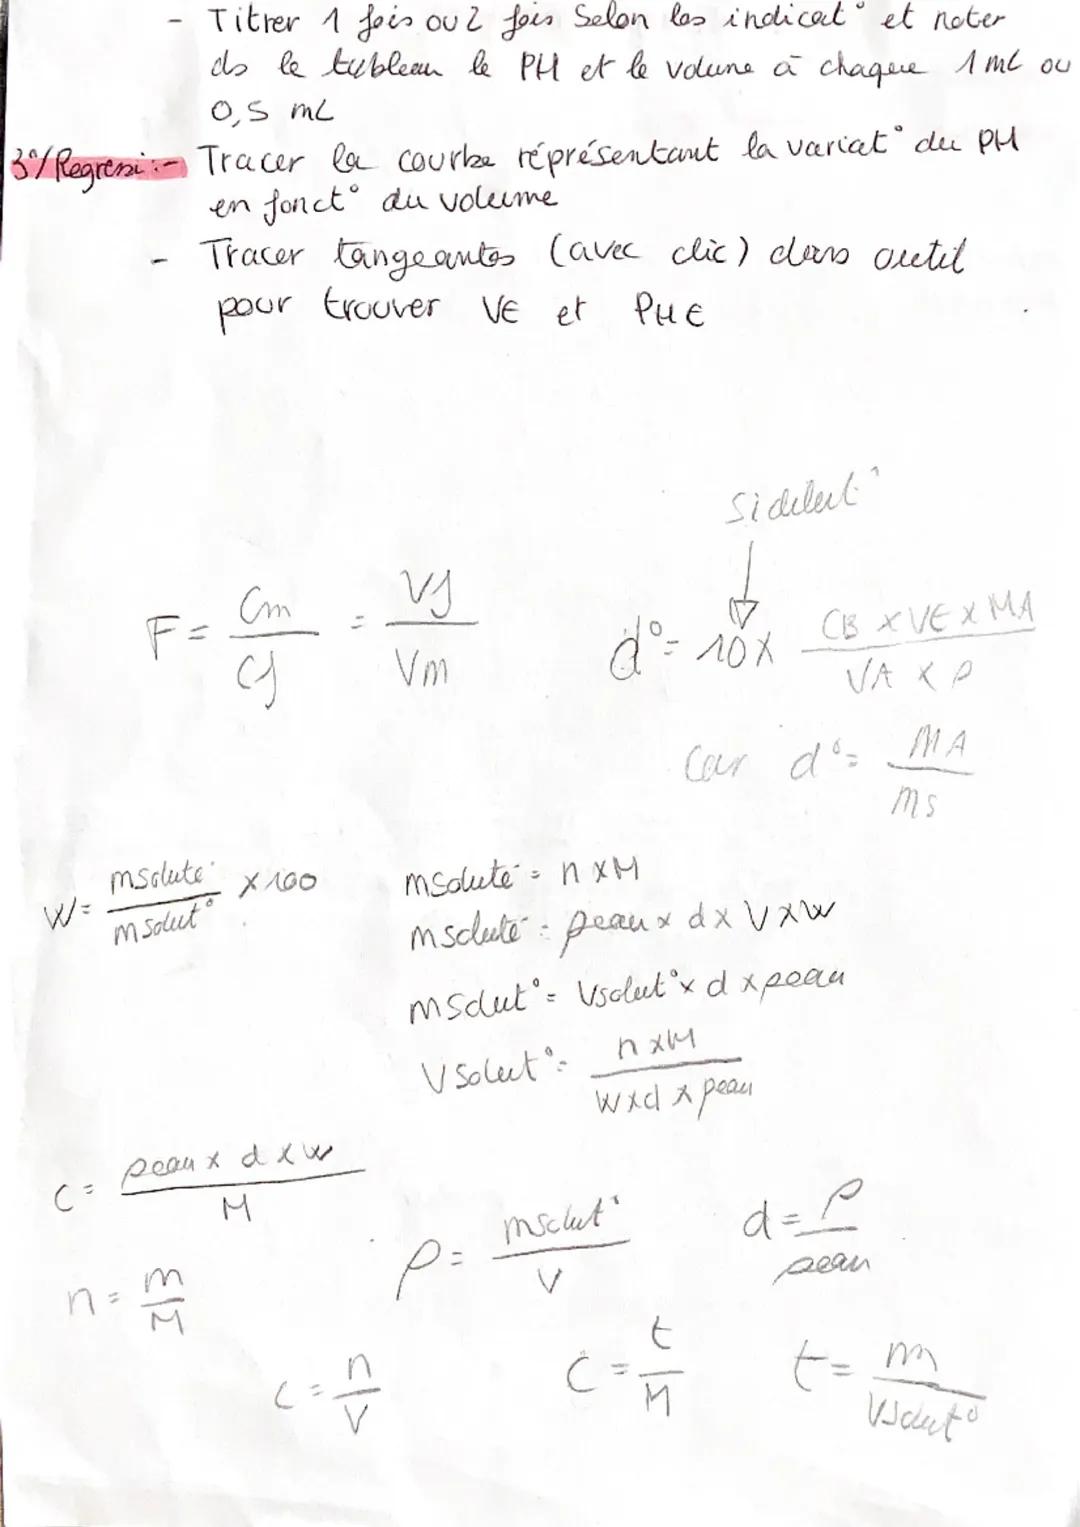 - Titrer 1 fois ou 2 fois Selon les indicat° et noter
ds le tableau le PH et le volume à chaque 1 mL ou
0,5 mL
3°/ Regressi :- Tracer la courbe réprésentant la variat° du PH
en fonct° du volume
- Tracer tangeantes (avec clic) dans outil
pour trouver VE et PHE
Si dilut°
F = Cm / Cf = Vf / Vm
d° = 10 x CB x VE x MA / VA x ρ
Car d° = MA / ms
W = msoluté / msolut° x 100
msoluté = n x M
msoluté = ρeau x d x V x w
msolut° = Vsolut° x d x ρeau
Vsolut° = n x M / w x d x ρeau
C = ρeau x d x w / M
ρ = msolut° / V
d = ρ / ρeau
n = m / M
C = n / V
C = t / M
t = m / Vsolut°